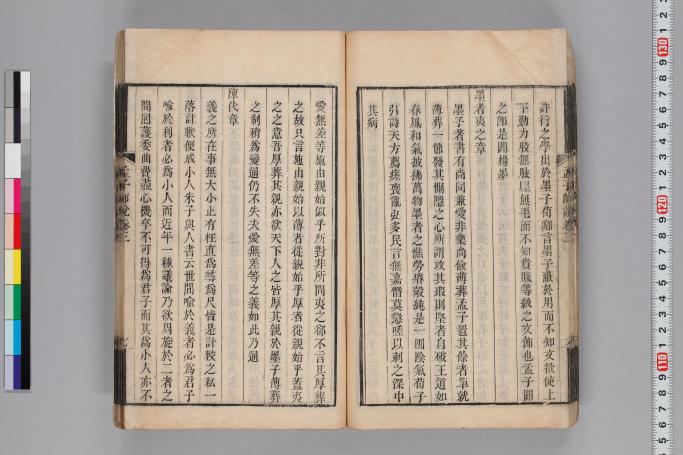 許行之學出於墨子荀卿言墨子蔽於用而不知文欲使上
下勤力股無胈脛無毛而不知貴賤等級之文飾也孟子闢
之卽是闢楊墨
墨者夷之章
墨子著書有尚同兼愛非樂尚儉薄葬孟子置其餘者単就
薄葬一節發其惻隱之心所謂攻其瑕則堅者自破王道如
春風和氣披拂萬物墨者之憔勞瘠觳純是一團陰氣荀子
引詩天方薦瘥喪亂弘多民言無嘉憯莫懲嗟以刺之深中
其病
愛無差等施由親始似乎所對非所問夷之卻不言其厚葬
之故只言施由親始以薄者從親始乎厚者從親始乎蓋夷
之之意吾厚葬其親亦欲天下人之皆厚其親於墨子薄葬
之制稍爲變通仍不失夫愛無差等之義如此乃通
陳代章
義之所在事無大小止有枉直爲尋爲尺皆是計較之私一
落計較便成小人朱子與人書云世間喻於義者必爲君子
喻於利者必爲小人而近年一種議論乃欲周旋於二者之
間回護委曲費盡心機卒不可得爲君子而其爲小人亦不
孟子師說卷三
七